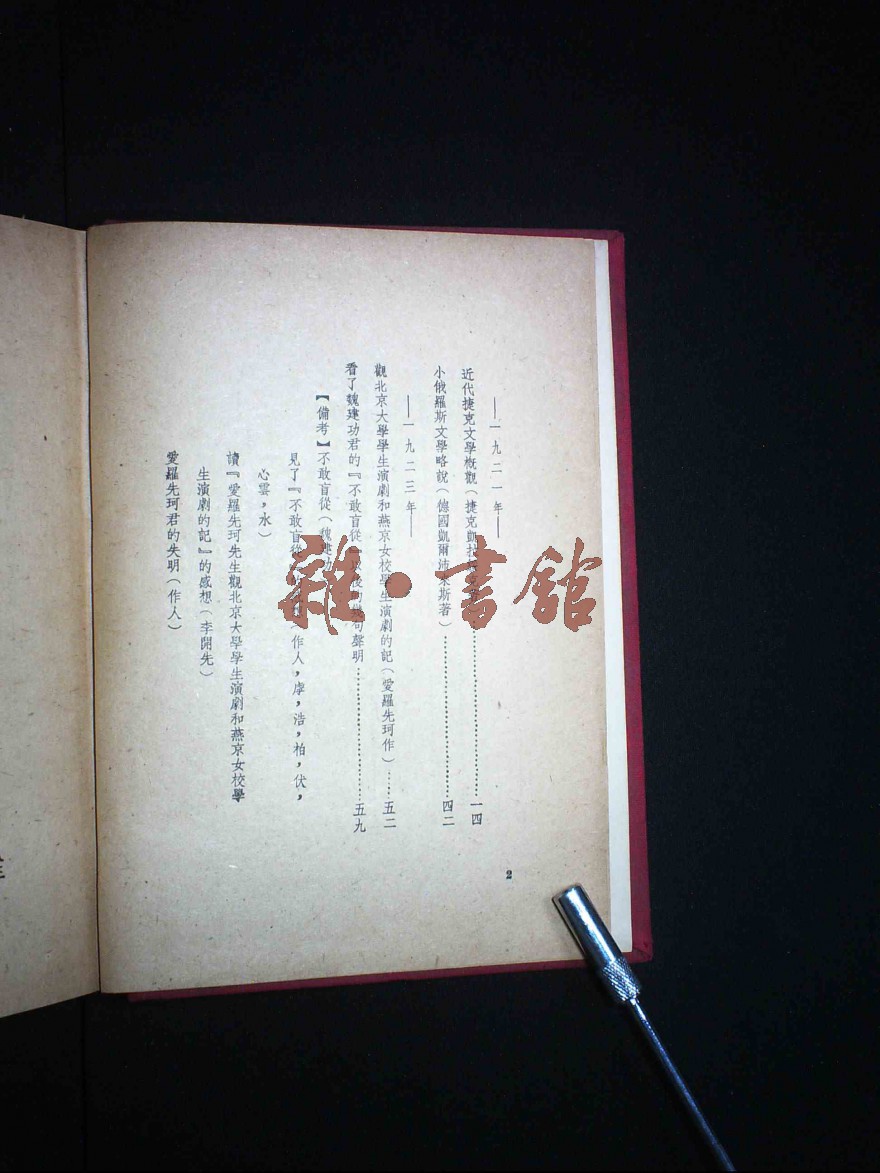 ——一九二一年——
近代捷克文學概觀（捷克凱拉綏克著）…………一四
小俄羅斯文學略說（德國凱爾沛來斯著）…………四二
——一九二三年——
觀北京大學學生演劇和燕京女校學生演劇的記（愛羅先珂作）……五二
看了魏建功君的『不敢盲從』以後的幾句聲明…………五九
【備考】不敢盲從（魏建功
見了『不敢盲從』 作人，䧹，浩，柏，伏，
心雲，水）
讀『愛羅先珂先生觀北京大學學生演劇和燕京女校學
生演劇的記』的感想（李開先）
愛羅先珂君的失明（作人）
2
雜·書館